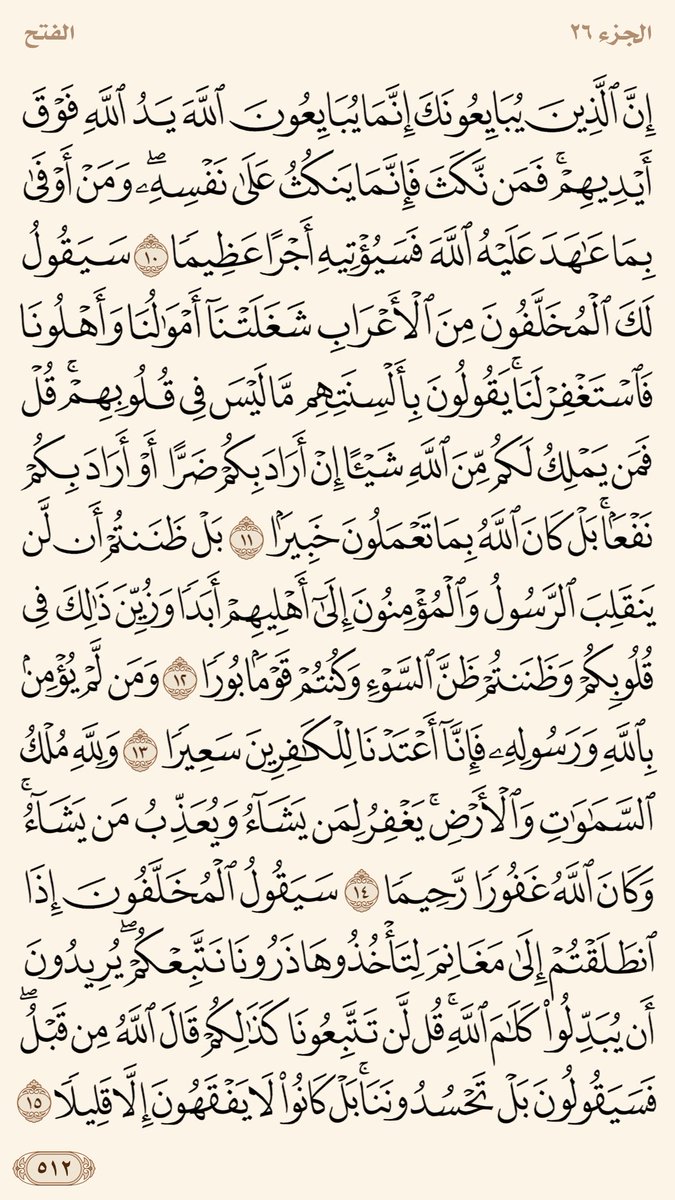 الجزء ٢٦
الفتح
إِنَّ ٱلَّذِينَ يُبَايِعُونَكَ إِنَّمَا يُبَايِعُونَ ٱللَّهَ يَدُ ٱللَّهِ فَوْقَ
أَيْدِيهِمْۚ فَمَن نَّكَثَ فَإِنَّمَا يَنكُثُ عَلَىٰ نَفْسِهِۦۖ وَمَنْ أَوْفَىٰ
بِمَا عَٰهَدَ عَلَيْهُ ٱللَّهَ فَسَيُؤْتِيهِ أَجْرًا عَظِيمًا ١٠ سَيَقُولُ
لَكَ ٱلْمُخَلَّفُونَ مِنَ ٱلْأَعْرَابِ شَغَلَتْنَآ أَمْوَٰلُنَا وَأَهْلُونَا
فَٱسْتَغْفِرْ لَنَاۚ يَقُولُونَ بِأَلْسِنَتِهِم مَّا لَيْسَ فِى قُلُوبِهِمْۚ قُلْ
فَمَن يَمْلِكُ لَكُم مِّنَ ٱللَّهِ شَيْـًٔا إِنْ أَرَادَ بِكُمْ ضَرًّا أَوْ أَرَادَ بِكُمْ
نَفْعَۢاۚ بَلْ كَانَ ٱللَّهُ بِمَا تَعْمَلُونَ خَبِيرَۢا ١١ بَلْ ظَنَنتُمْ أَن لَّن
يَنقَلِبَ ٱلرَّسُولُ وَٱلْمُؤْمِنُونَ إِلَىٰٓ أَهْلِيهِمْ أَبَدًا وَزُيِّنَ ذَٰلِكَ فِى
قُلُوبِكُمْ وَظَنَنتُمْ ظَنَّ ٱلسَّوْءِ وَكُنتُمْ قَوْمَۢا بُورًا ١٢ وَمَن لَّمْ يُؤْمِنۢ
بِٱللَّهِ وَرَسُولِهِۦ فَإِنَّآ أَعْتَدْنَا لِلْكَٰفِرِينَ سَعِيرًا ١٣ وَلِلَّهِ مُلْكُ
ٱلسَّمَٰوَٰتِ وَٱلْأَرْضِۚ يَغْفِرُ لِمَن يَشَآءُ وَيُعَذِّبُ مَن يَشَآءُۚ
وَكَانَ ٱللَّهُ غَفُورًا رَّحِيمًا ١٤ سَيَقُولُ ٱلْمُخَلَّفُونَ إِذَا
ٱنطَلَقْتُمْ إِلَىٰ مَغَانِمَ لِتَأْخُذُوهَا ذَرُونَا نَتَّبِعْكُمْۖ يُرِيدُونَ
أَن يُبَدِّلُوا۟ كَلَٰمَ ٱللَّهِۚ قُل لَّن تَتَّبِعُونَا كَذَٰلِكُمْ قَالَ ٱللَّهُ مِن قَبْلُۖ
فَسَيَقُولُونَ بَلْ تَحْسُدُونَنَاۚ بَلْ كَانُوا۟ لَا يَفْقَهُونَ إِلَّا قَلِيلًا ١٥
٥١٢